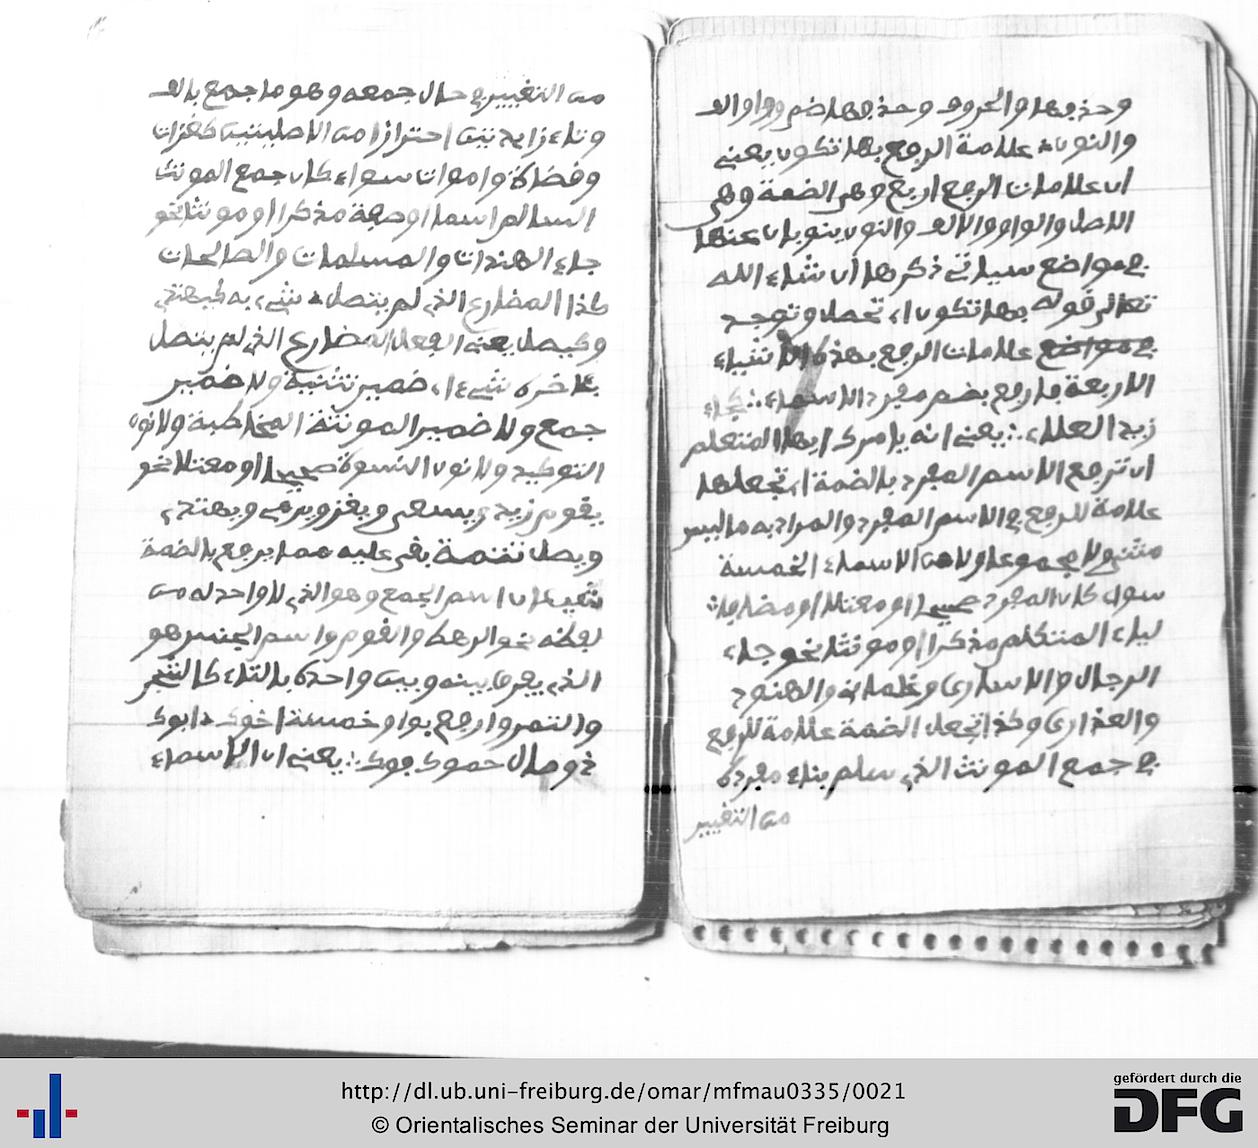 وحذفها والحروف وحذفها ضم وواو والف
والنون علامة الرفع بها تكون يعني
ان علامات الرفع اربع وهي الضمة وهي
الاصل والواو والالف والنون ينوبان عنها
في مواضع سياتي ذكرها ان شاء الله
تعالى قوله بها تكون اي تحصل وتوجد
في مواضع علامات الرفع بهذه الاشياء
الاربعة فارفع بضم مفرد الاسماء كجاء
زيد العلاء يعني انه يامرك ايها المتعلم
ان ترفع الاسم المفرد بالضمة اي تجعلها
علامة للرفع في الاسم المفرد والمراد به ما ليس
مثنى ولا مجموعا ولا من الاسماء الخمسة
سواء كان المفرد صحيحا او معتلا او مضافا
لياء المتكلم مذكرا او مونثا نحو جاء
الرجال والاسارى وغلمانه والهنود
والعذارى وكذا تجعل الضمة علامة للرفع
في جمع المونث الذي سلم بناء مفرده
من التغيير
من التغيير في حال جمعه وهو ما جمع بالف
وتاء زايدتين احترازا من الاصليتين كغزات
وقضاة واموات سواء كان جمع المونث
السالم اسما او صفة مذكرا او مونثا نحو
جاء الهندات والمسلمات والصالحات
كذا المضارع الذي لم يتصل شيء به كيهتدي
وكيصل يعني الفعل المضارع الذي لم يتصل
بئاخره شيء اي ضمير تثنية ولا ضمير
جمع ولا ضمير المونثة المخاطبة ولا نون
التوكيد ولا نون النسوة صحيحا او معتلا نحو
يقوم زيد ويسعى ويغزو ويرمي ويهتدي
ويصل تتمة بقي عليه مما يرفع بالضمة
شيئان اسم الجمع وهو الذي لا واحد له من
لفظه نحو الرهط والقوم واسم الجنس هو
الذي يفرق بينه وبين واحده بالتاء كالشجر
والتمر وارفع بواو خمسة اخوك ابوك
ذو مال حموك فوك يعني ان الاسماء
http://dl.ub.uni-freiburg.de/omar/mfmau0335/0021
© Orientalisches Seminar der Universität Freiburg
gefördert durch die
DFG